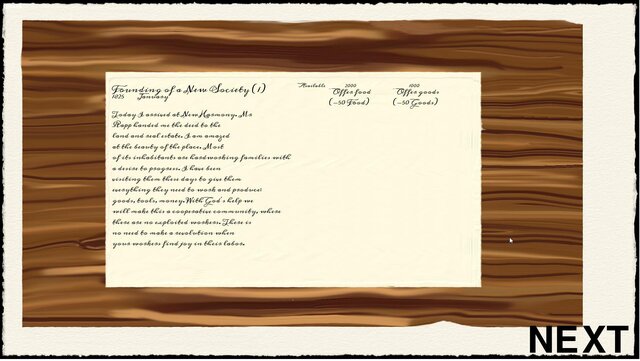 Founding of a New Society (1)
1825 January
Available 1000 1000
Offer food Offer goods
(-50 Food) (-50 Goods)
Today I arrived at New Harmony. Mr
Rapp handed me the deed to the
land and real estate. I am amazed
at the beauty of the place. Most
of its inhabitants are hardworking families with
a desire to progress. I have been
visiting them these days to give them
everything they need to work and produce:
goods, tools, money. With God's help we
will make this a cooperative community, where
there are no exploited workers. There is
no need to make a revolution when
your workers find joy in their labor.
NEXT